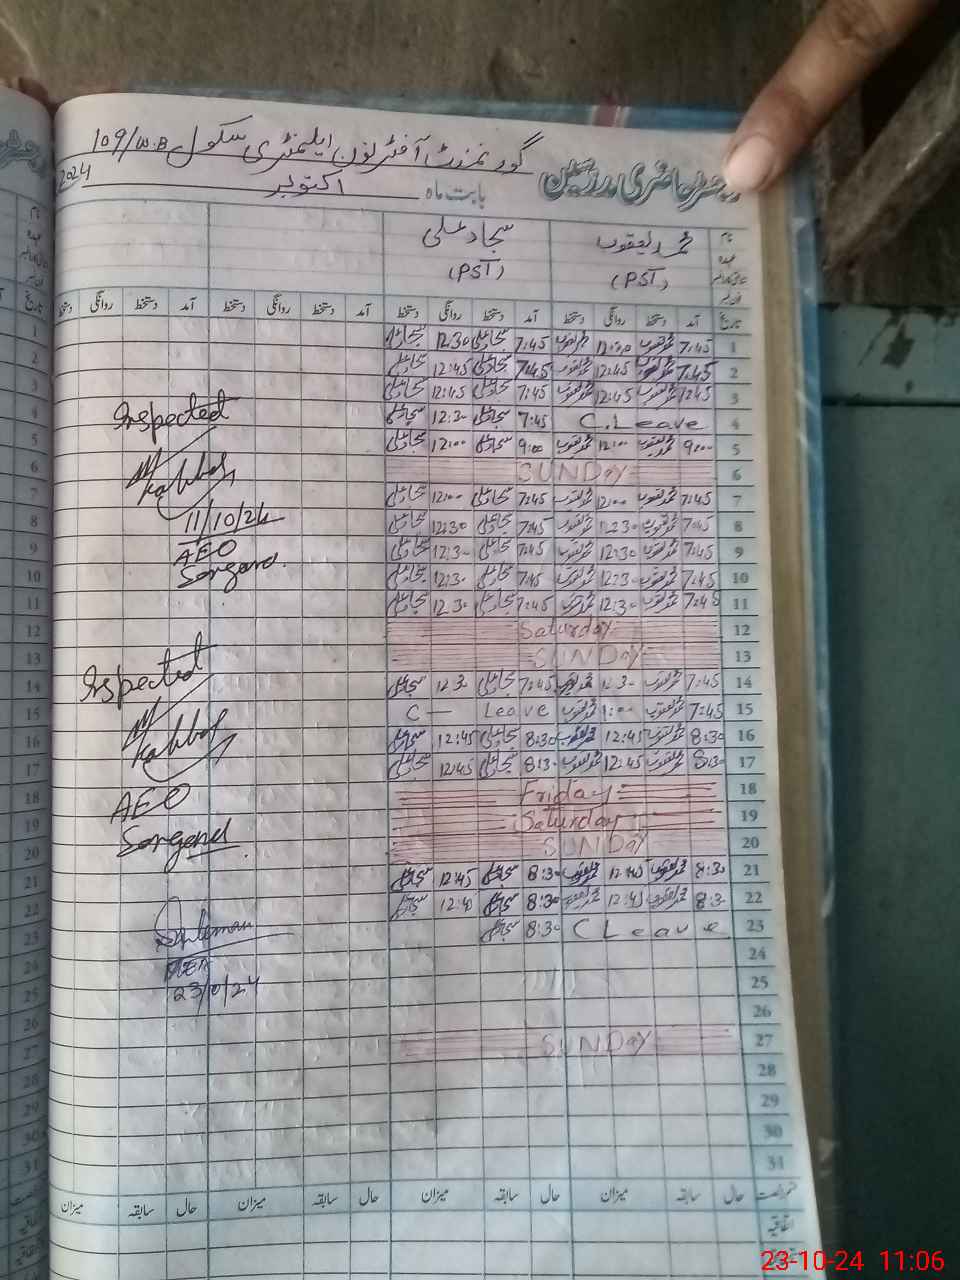 رجسٹر حاضری مدرسین گورنمنٹ آفٹر نون ایلمنٹری سکول 109/W.B
بابت ماہ اکتوبر 2024
نام محمد یعقوب سجاد علی
عہدہ (PST) (PST)
تاریخ آمد دستخط روانگی دستخط آمد دستخط روانگی دستخط آمد دستخط روانگی دستخط آمد دستخط روانگی دستخط
1 7:45 محمد یعقوب 12:00 محمد یعقوب 7:45 سجاد علی 12:30 سجاد علی
2 7:45 محمد یعقوب 12:45 محمد یعقوب 7:45 سجاد علی 12:45 سجاد علی
3 محمد یعقوب 12:45 محمد یعقوب 7:45 سجاد علی 12:45 سجاد علی
4 C.Leave 7:45 سجاد علی 12:30 سجاد علی
5 9:00 محمد یعقوب 12:00 محمد یعقوب 9:00 سجاد علی 12:00 سجاد علی
6 SUNDay
7 7:45 محمد یعقوب 12:00 محمد یعقوب 7:45 سجاد علی 12:00 سجاد علی
8 7:45 محمد یعقوب 12:30 محمد یعقوب 7:45 سجاد علی 12:30 سجاد علی
9 7:45 محمد یعقوب 12:30 محمد یعقوب 7:45 سجاد علی 12:30 سجاد علی
10 7:45 محمد یعقوب 12:30 محمد یعقوب 7:45 سجاد علی 12:30 سجاد علی
11 7:45 محمد یعقوب 12:30 محمد یعقوب 7:45 سجاد علی 12:30 سجاد علی
12 Saturday
13 SUNDay
14 7:45 محمد یعقوب 12:30 محمد یعقوب 7:45 سجاد علی 12:30 سجاد علی
15 7:45 محمد یعقوب 1:00 محمد یعقوب C — Leave
16 8:30 محمد یعقوب 12:45 محمد یعقوب 8:30 سجاد علی 12:45 سجاد علی
17 8:30 محمد یعقوب 12:45 محمد یعقوب 8:30 سجاد علی 12:45 سجاد علی
18 Friday
19 Saturday
20 SUNDay
21 8:30 محمد یعقوب 12:45 محمد یعقوب 8:30 سجاد علی 12:45 سجاد علی
22 8:30 محمد یعقوب 12:45 محمد یعقوب 8:30 سجاد علی 12:40 سجاد علی
23 C Leave 8:30 سجاد علی
24
25
26
27 SUNDAY
28
29
30
31
حال سابقہ میزان حال سابقہ میزان حال سابقہ میزان حال سابقہ میزان
اتفاقیہ
Inspected
11/10/24
AEO
Inspected
AEO
23/10/24
23-10-24 11:06